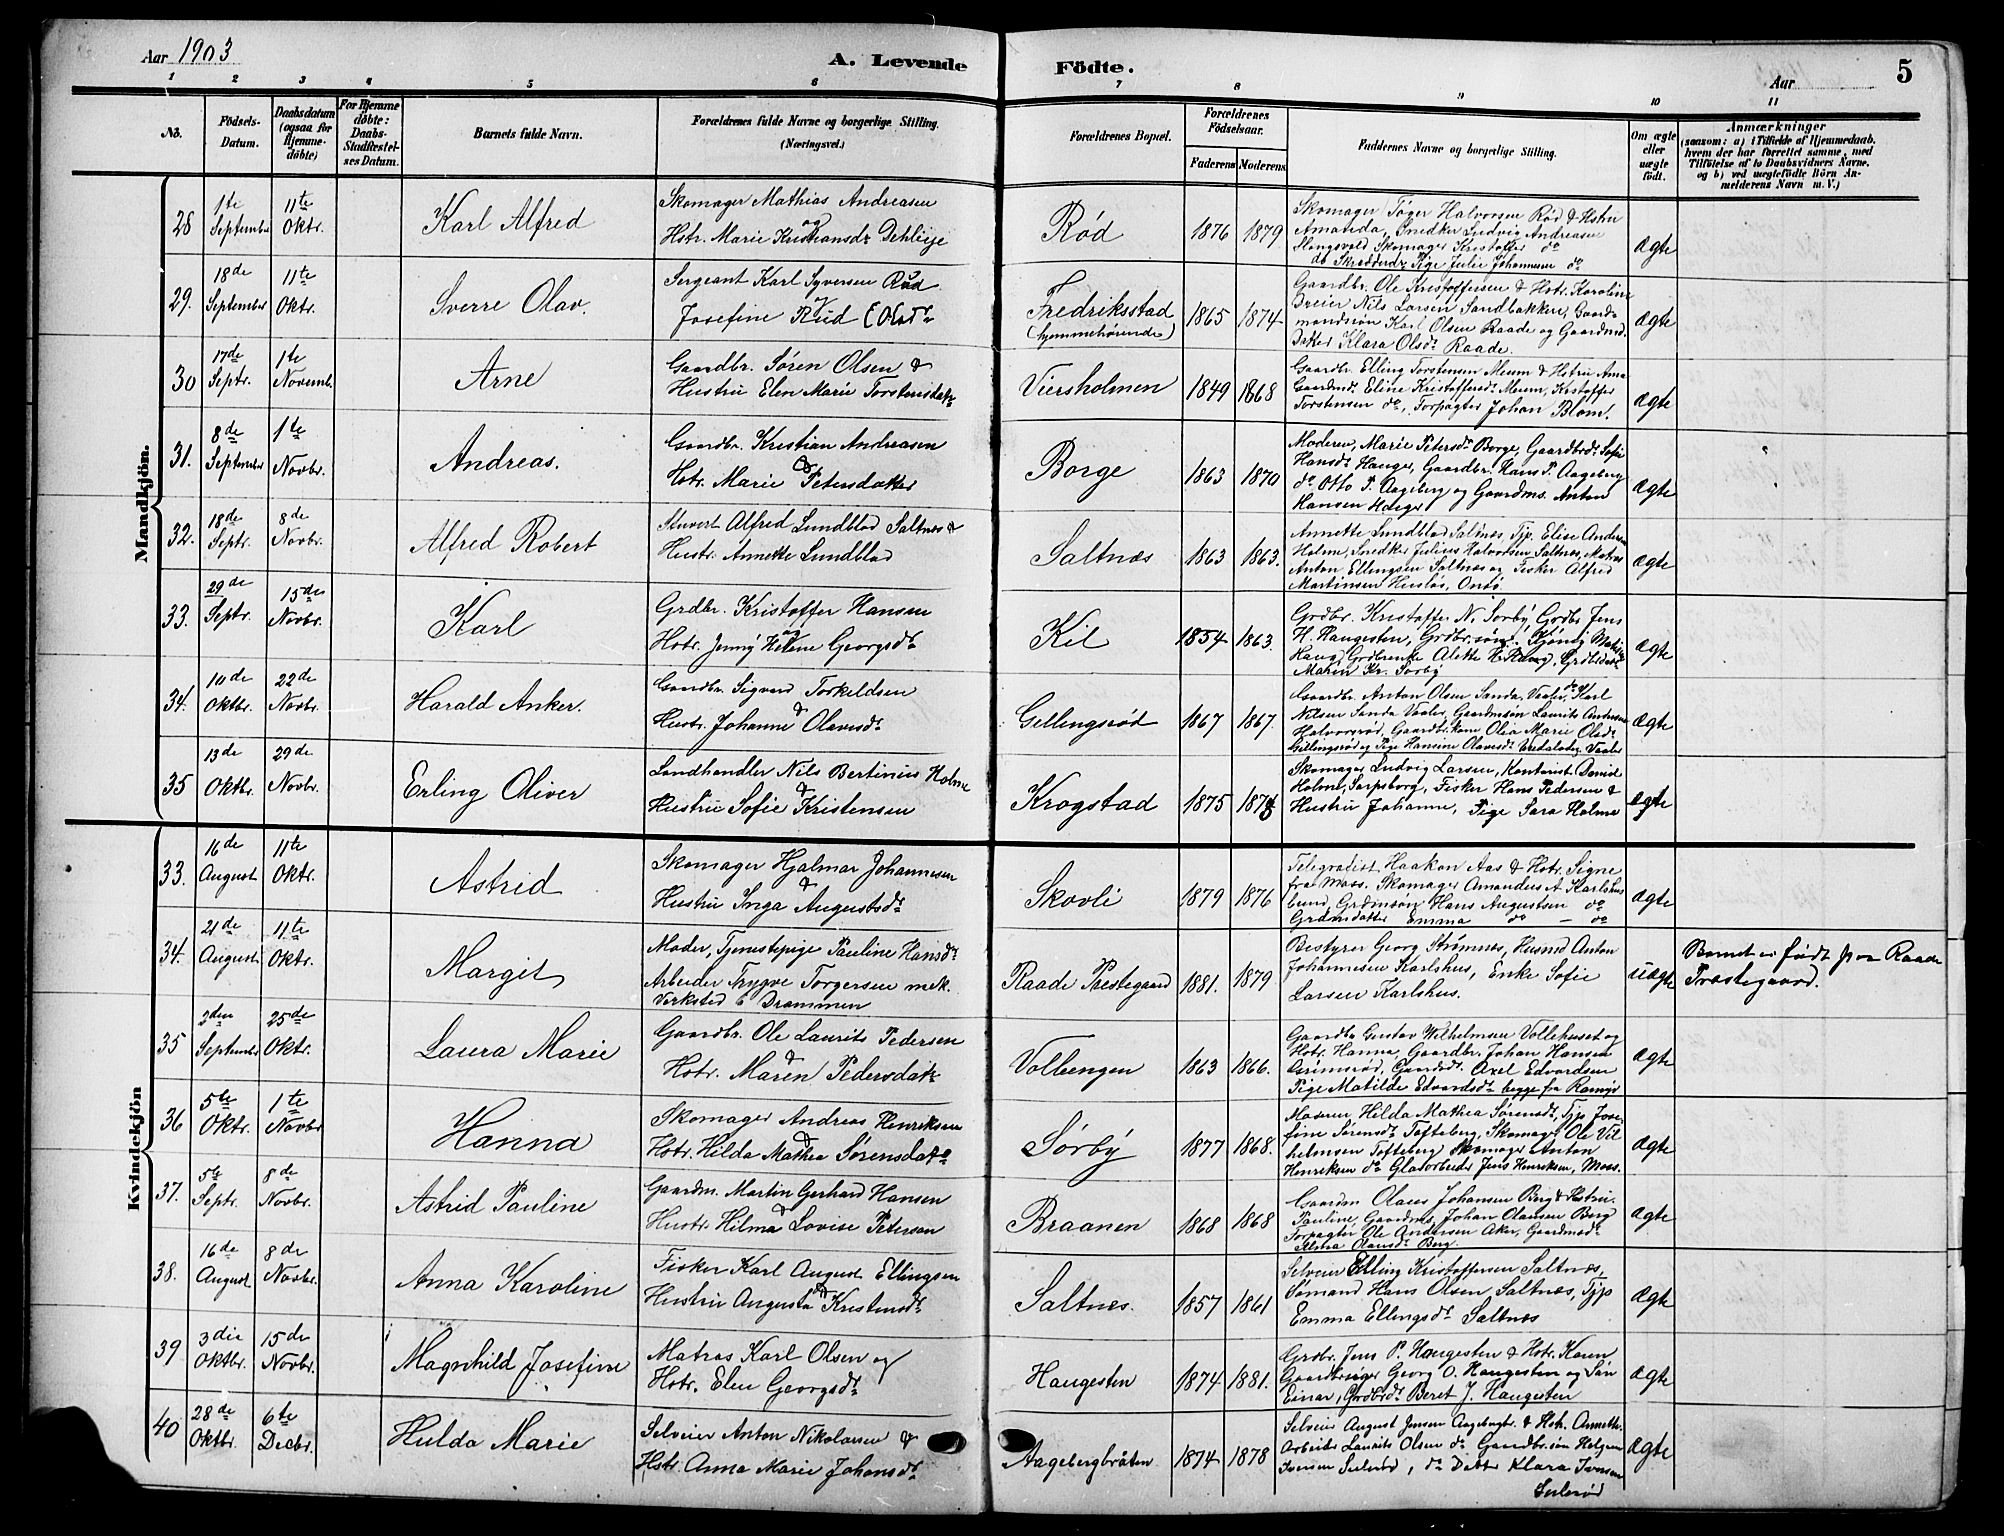 Aar 1903
A. Levende Födte.
Aar
5
1 2 3 4 5 6 7 8 9 10 11
No. Födsels-Datum. Daabsdatum (ogsaa for Hjemmedöbte) For Hjemmedöbte: Daabs-Stadfæstelses Datum. Barnets fulde Navn. Forældrenes fulde Navne og borgerlige Stilling. (Næringsvei.) Forældrenes Bopæl. Forældrenes Födselsaar. Faderens Moderens Faddernes Navne og borgerlige Stilling. Om ægte eller uægte födt. Anmærkninger (saasom: a) i Tilfælde af Hjemmedaab, hvem der har forrettet samme, med Tilföielse af to Daabsvidners Navne, og b) ved uægtefödte Börn Anmelderens Navn m. V.)
Mandkjön.
28 1te September 11te Oktr. Karl Alfred
Skomager Mathias Andreasen
og
Hstr. Marie Kristiansdr
Rød 1876 1879
Skomager Tøger Halvorsen Rød & Hstru
Amanda, Snedker Ludvig Andreasen
Skomager Kristoffer do
Pige Julie Johannesen do
Ægte
29. 18de September 11te Oktr. Sverre Olav.
Sergeant Karl Syversen Rud
Josefine Rud
Fredriksstad (hjemmehørende) 1865 1874
Gaardbr. Ole Kristoffersen & Hstr. Karoline
Breier Nils Larsen Sandbakken, Gaard-
mandssøn Karl Olsen Raade og Gaardmd.
Datter Klara Olsdr Raade.
Ægte
30 17de Septr. 1te Novemb. Arne
Gaardbr. Søren Olsen &
Hustru Elen Marie Torstensdatr
Viersholmen 1849 1868
Gaardbr. Elling Torstensen Meum & Hstru Anna
Gaardmdr Eline Kristoffersdr Meum, Kristoffer
Torstensen do, Forpagter Johan Blom.
Ægte
31. 8de September 1te Novbr. Andreas.
Gaardbr. Kristian Andreasen
&
Hstr. Marie Petersdatter
Borge 1863 1870
Moderen, Marie Petersdr Borge, Gaardbrdr Sofie
Hansdr Hauger, Gaardbr. Hans P. Aageberg
do Otto P. Aageberg og Gaardms. Anton
Hansen Hauger
Ægte
32. 18de Septr. 8de Novbr. Alfred Robert
Stuvert Alfred Lundblad Saltnes &
Hustr. Annette Lundblad
Saltnæs 1863 1863.
Annette Lundblad Saltnes, Tjp. Elise Andersen
Holm, Snedker Julius Halvorsen Saltnæs, Matros
Anton Ellingsen Saltnæs og Fisker Alfred
Martinsen Husløs, Onsø
Ægte
33. 29de Septr. 15de Novbr. Karl
Grdbr. Kristoffer Hansen
og
Hstr. Jenny Helene Georgsdr
Kil 1854 1863.
Grdbr. Kristoffer N. Sørby, Grdbr. Jens
H. Haugesten, Grdbr.søn
Haug, Grdbrenke Alette H. Haug, Grdbrdatr
Maren Kr. Sørby
Ægte
34. 10de Oktbr. 22de Novbr. Harald Anker.
Gaardbr. Sigvard Torkeldsen
&
Hustr. Johanne Olavesdr
Gellingsrød 1867 1867.
Gaardbr. Anton Olsen Sanda, Vaaler, do Karl
Nilsen Sanda Vaaler, Gaardmsøn Laurits Andersen
Halvorsrød, Gaardbr.kone Olea Marie Olsdr
Gillingsrød og Pige Hansine Olavesdr Vaaler
Ægte
35 13de Oktbr. 29de Novbr. Erling Oliver
Landhandler Nils Bertinius Holme
&
Hustru Sofie Kristensen
Krogstad 1875 1878
Skomager Ludvig Larsen, Kontorist David
Holme, Sarpsborg, Fisker Hans Pedersen &
Hustru Johanne, Pige Sara Holme
Ægte
Kvindekjön
33. 16de August 11te Oktr. Astrid
Skomager Hjalmar Johannesen
&
Hustru Inga Augustsdr
Skovli 1879 1876
Telegrafist Haakon Aas & Hstr. Signe
fra Moss. Skomager Amandus A. Karlshus
Grdmsøn Hans Augustsen do
Grdmdatter Emma do – do
Ægte
34. 21de August 11te Oktr. Margit
Moder, Tjenestepige Pauline Hansdr
Arbeider Trygve Torgersen mek.
Verksted i Drammen
Raade Prestegaard 1881. 1879
Bestyrer Georg Strømnes, Husmd Anton
Johannesen Karlshus, Enke Sofie
Larsen Karlshus.
Uægte
Barnet er født paa Raade
Præstegaard.
35 2den September 25de Oktr. Laura Marie
Gaardbr. Ole Laurits Pedersen
&
Hstr. Maren Pedersdatr
Vollengen 1863 1866.
Gaardbr. Gustav Wilhelmsen Vollehuset og
Hstr. Hanna, Gaardbr. Johan Hansen
Grimsrød, Gaardsdr. Axel Edvardsen
Pige Matilde Edvardsdr begge fra Ramsjø
Ægte
36 5te Oktr. 1te Novbr Hanna
Skomager Andreas Henriksen
&
Hstr. Hilda Mathea Sørensdatr
Sørby 1877 1868.
Moderen, Hilda Mathea Sørensdr, Tjp Jose-
fine Sørensdr Tofteberg, Skomager Ole Vil-
helmsen Tofteberg Skomager Anton
Henriksen do Glasarbeider Jens Henriksen, Moss.
Ægte
37. 5te Septr. 8de Novbr. Astrid Pauline
Gaardm. Martin Gerhard Hansen
&
Hustr. Hilma Lovise Petersen
Braanen 1868 1868
Gaardm Olaus Johansen Berg & Hstru.
Pauline, Gaardms. Johan Olausen Berg
Forpagter Ole Andersen Aker, Gaardmdr
Alma Olausdr Berg.
Ægte
38. 16de August 8de Novbr. Anna Karoline
Fisker Karl August Ellingsen
og
Hustru Augusta Kristensdr
Saltnes. 1857 1861
Selveier Elling Kristoffersen Saltnæs,
Sømand Hans Olsen Saltnæs, Tjp
Emma Ellingsdr Saltnæs
Ægte
39 3die Oktbr. 15de Novbr. Magnhild Josefine
Matros Karl Olsen og
Hstr. Elen Georgsdr
Haugesten 1874 1881.
Grdbr. Jens P. Haugesten & Hstr. Karen
Gaardbruger Georg O. Haugesten og Søn
Einar, Grdbrdr Beret J. Haugesten
Ægte
40. 28de Oktbr. 6te Decbr. Hulda Marie
Selveier Anton Nikolaisen &
Hstr. Anna Marie Johansdr
Aagebergbråten 1874 1878
Selveier August Jensen Aagebergbr. & Hstr. Annette.
Arbeider Laurits Olsen do Gaardbr.søn Helgen
Ivensen Seilerød, do Datter Klara Ivensen
Seilerød
Ægte